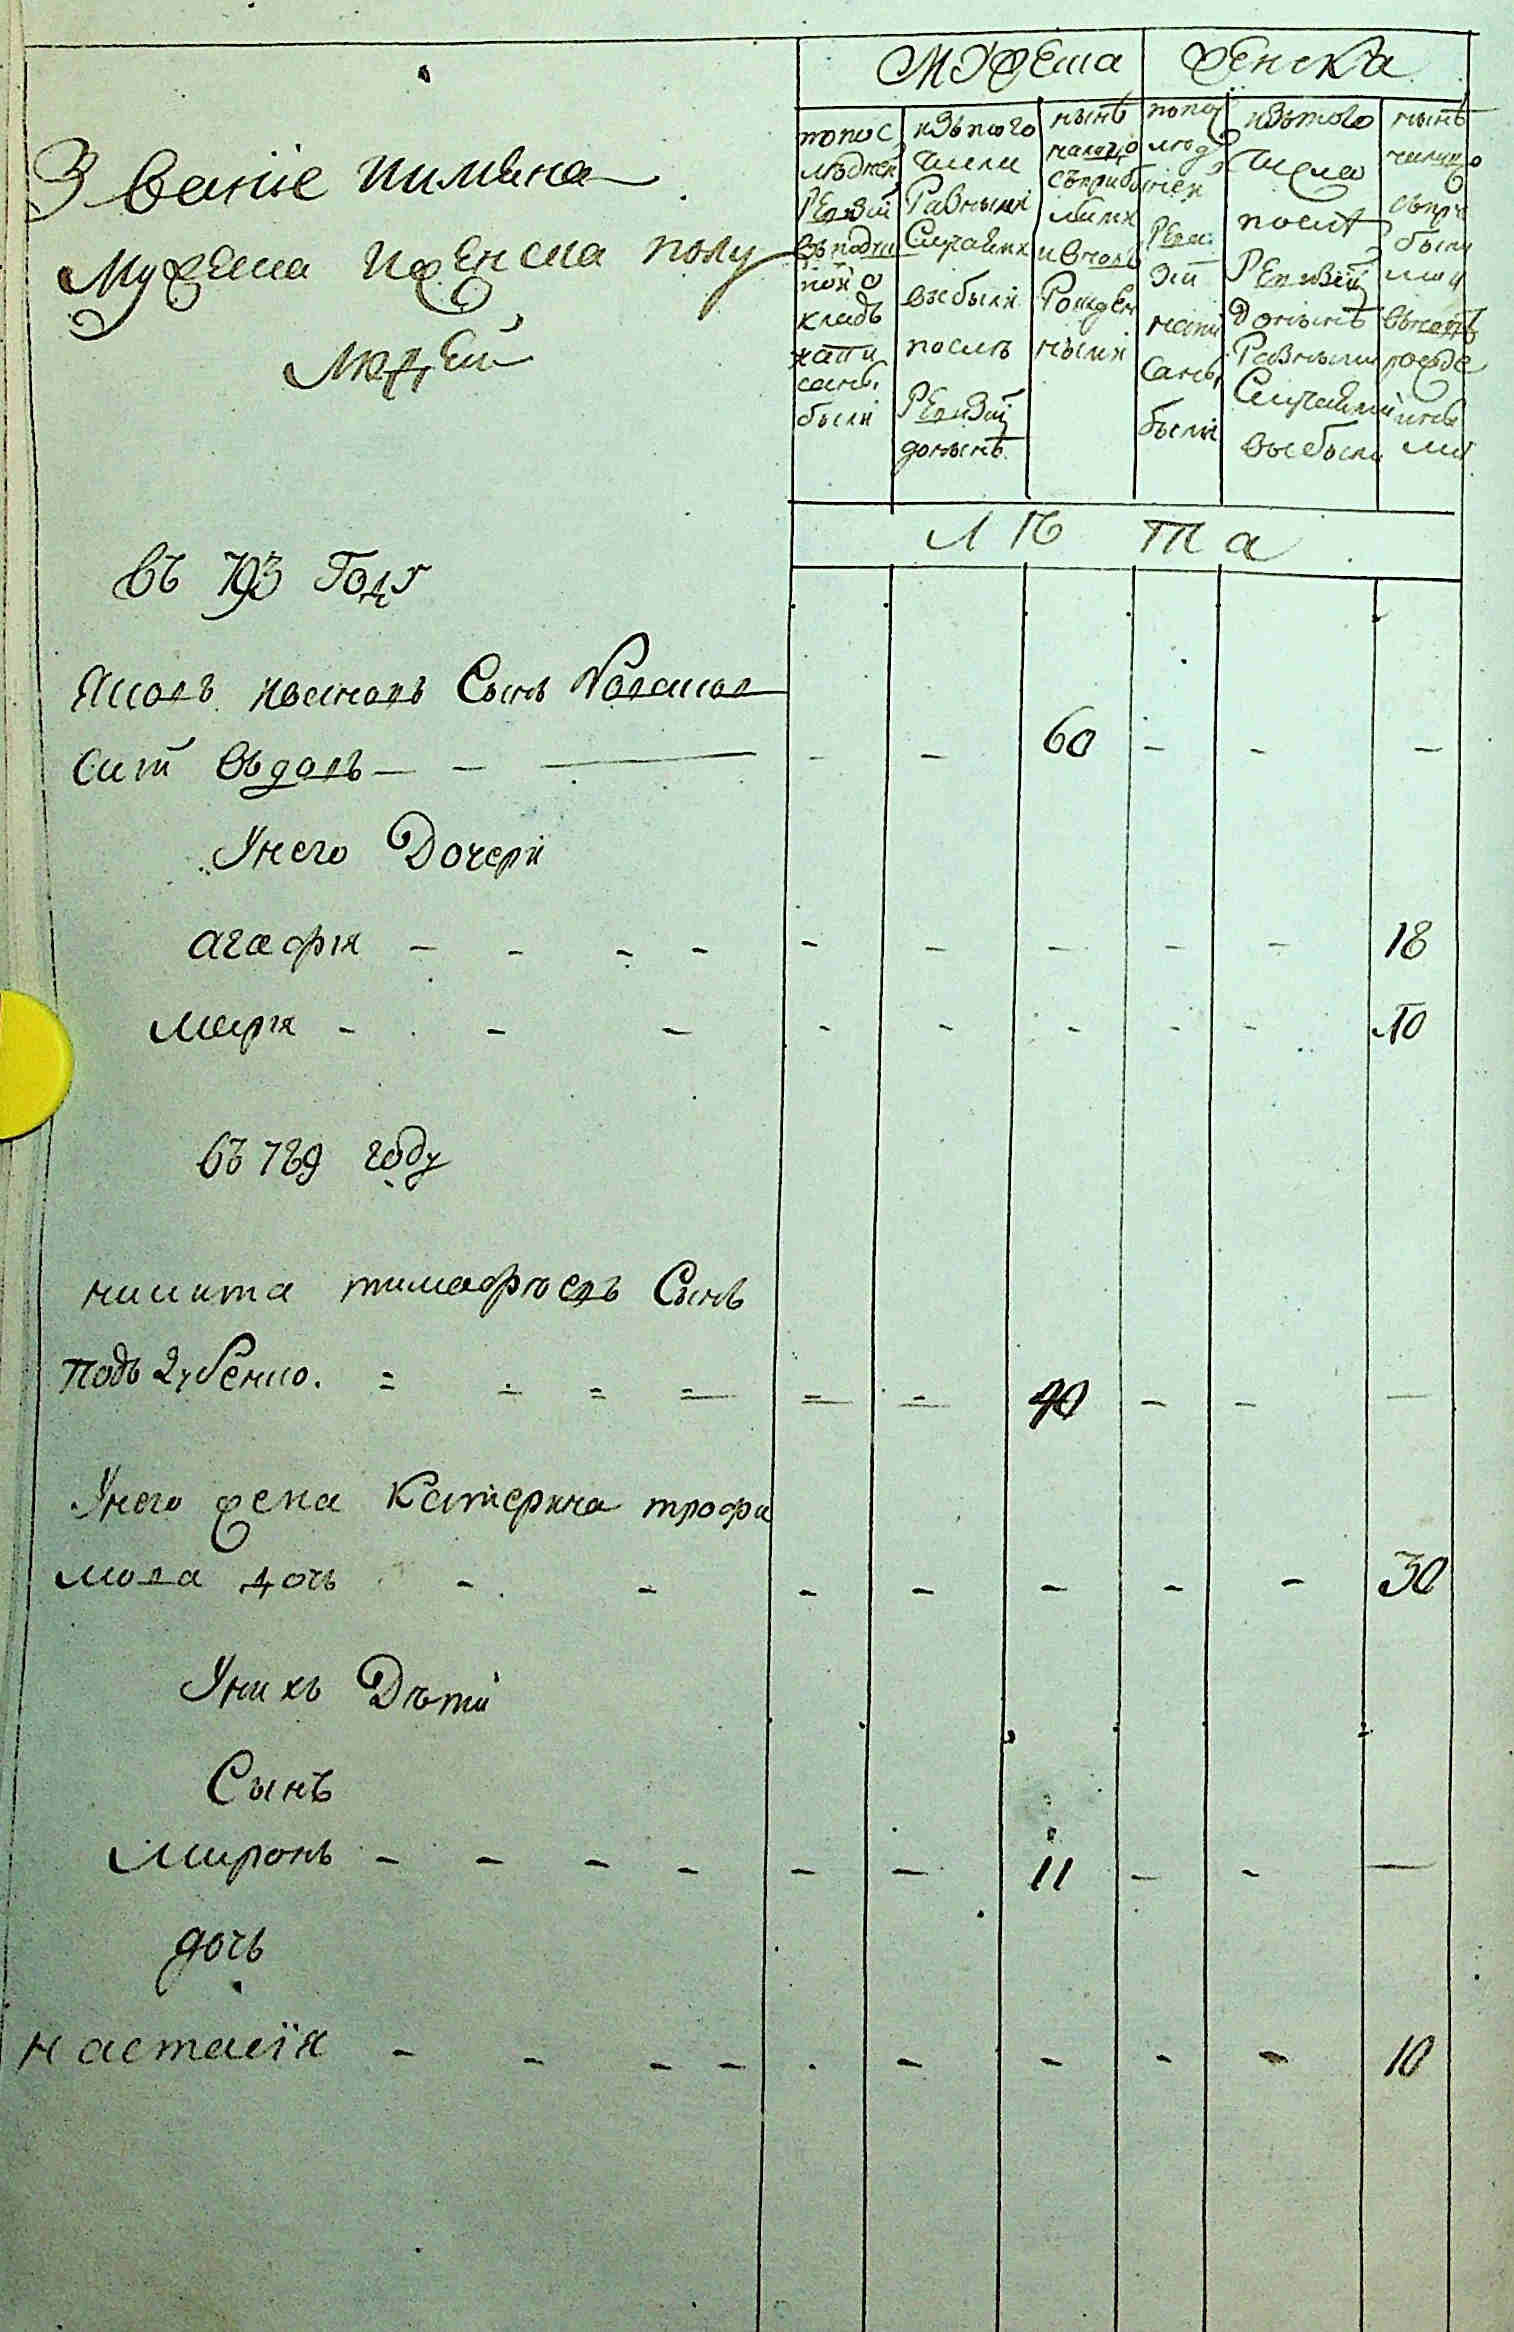 Мужеска женска
Званіе имяна
Мужеска иженска полу
людей
попос людней Ревизи вьподуш ной о кладь напи саны были
изьтого числа Разными Случаями выбыли послѣ Ревизий донынѣ
нынѣ налицо сьприбы лыми ивновь Рожден ными
попос люд ней Реви зій напи саны были
изьтого числа послѣ Ревизій донынѣ Разными Случаями выбыли
нынѣ налицо сьпри былы ми и вьновь рожде ны ми
лѣта
въ 793 Году
Яковъ ивановъ Сынъ
вдовъ — 60 — — —
Унего Дочери
агафия — 18
мария — 10
въ 789 году
никита тимофѣевъ Сынъ
Поддубенко. — 40 — — —
Унего жена Катерина трофи
мова дочь — 30
Унихъ Дѣти
Сынъ
миронъ — 11 — — —
дочь
настасія — 10